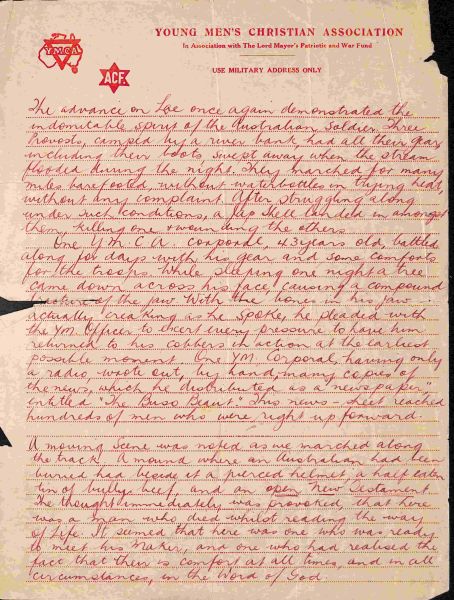 YOUNG MEN'S CHRISTIAN ASSOCIATION
In Association with The Lord Mayor's Patriotic and War Fund
YMCA
ACF.
USE MILITARY ADDRESS ONLY
The advance on Lae once again demonstrated the
indomitable spirit of the Australian Soldier. Three
Provosts, camped by a river bank, had all their gear
including their boots swept away when the stream
flooded during the night. They marched for many
miles barefooted, without waterbottles in trying heat,
without any complaint. After struggling along
under such conditions, a Jap shell landed in amongst
them, killing one & wounding the others.
One Y.M.C.A. corporal, 43 years old, battled
along for days with his gear and some comforts
for the troops. While sleeping one night a tree
came down across his face, causing a compound
fracture of the jaw. With the bones in his jaw
actually creaking as he spoke, he pleaded with
the YM. Officer to exert every pressure to have him
returned to his cobbers in action at the earliest
possible moment. One YM. Corporal, having only
a radio, wrote out, by hand, many copies of
the news, which he distributed as a "newspaper"
entitled "The Buso Beaut." This news-sheet reached
hundreds of men who were right up forward.
A moving scene was noted as we marched along
the track. A mound where an Australian had been
buried had beside it a pierced helmet, a half eaten
tin of bully beef, and an open New Testament.
The thought immediately was provoked, that here
was a man who died whilst reading the way
of Life. It seemed that here was one who was ready
to meet his Maker, and one who had realised the
fact that their is comfort at all times, and in all
circumstances, in the Word of God.